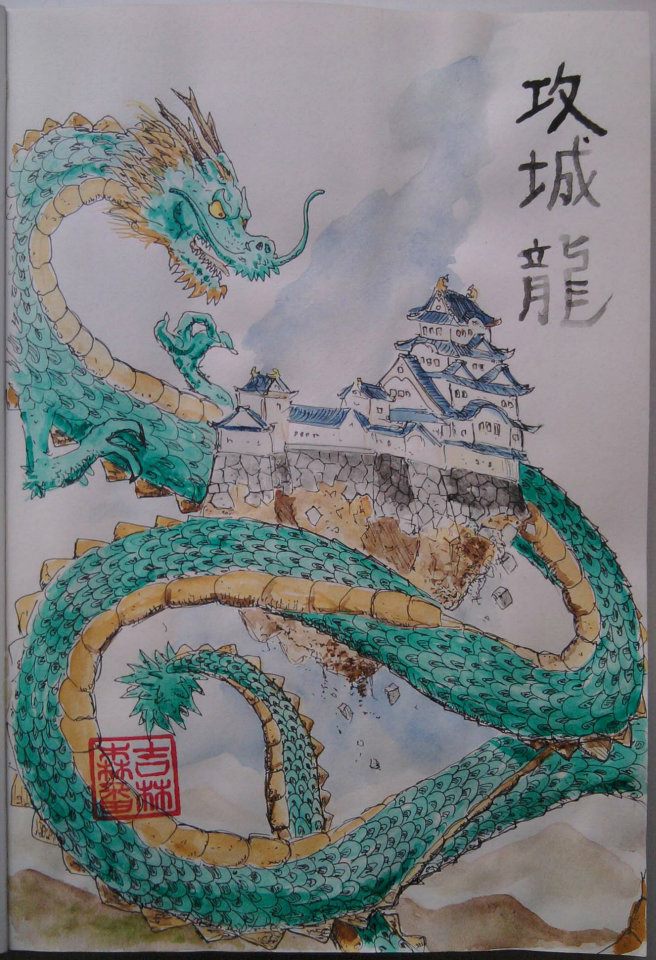 攻城龍
吉林
森